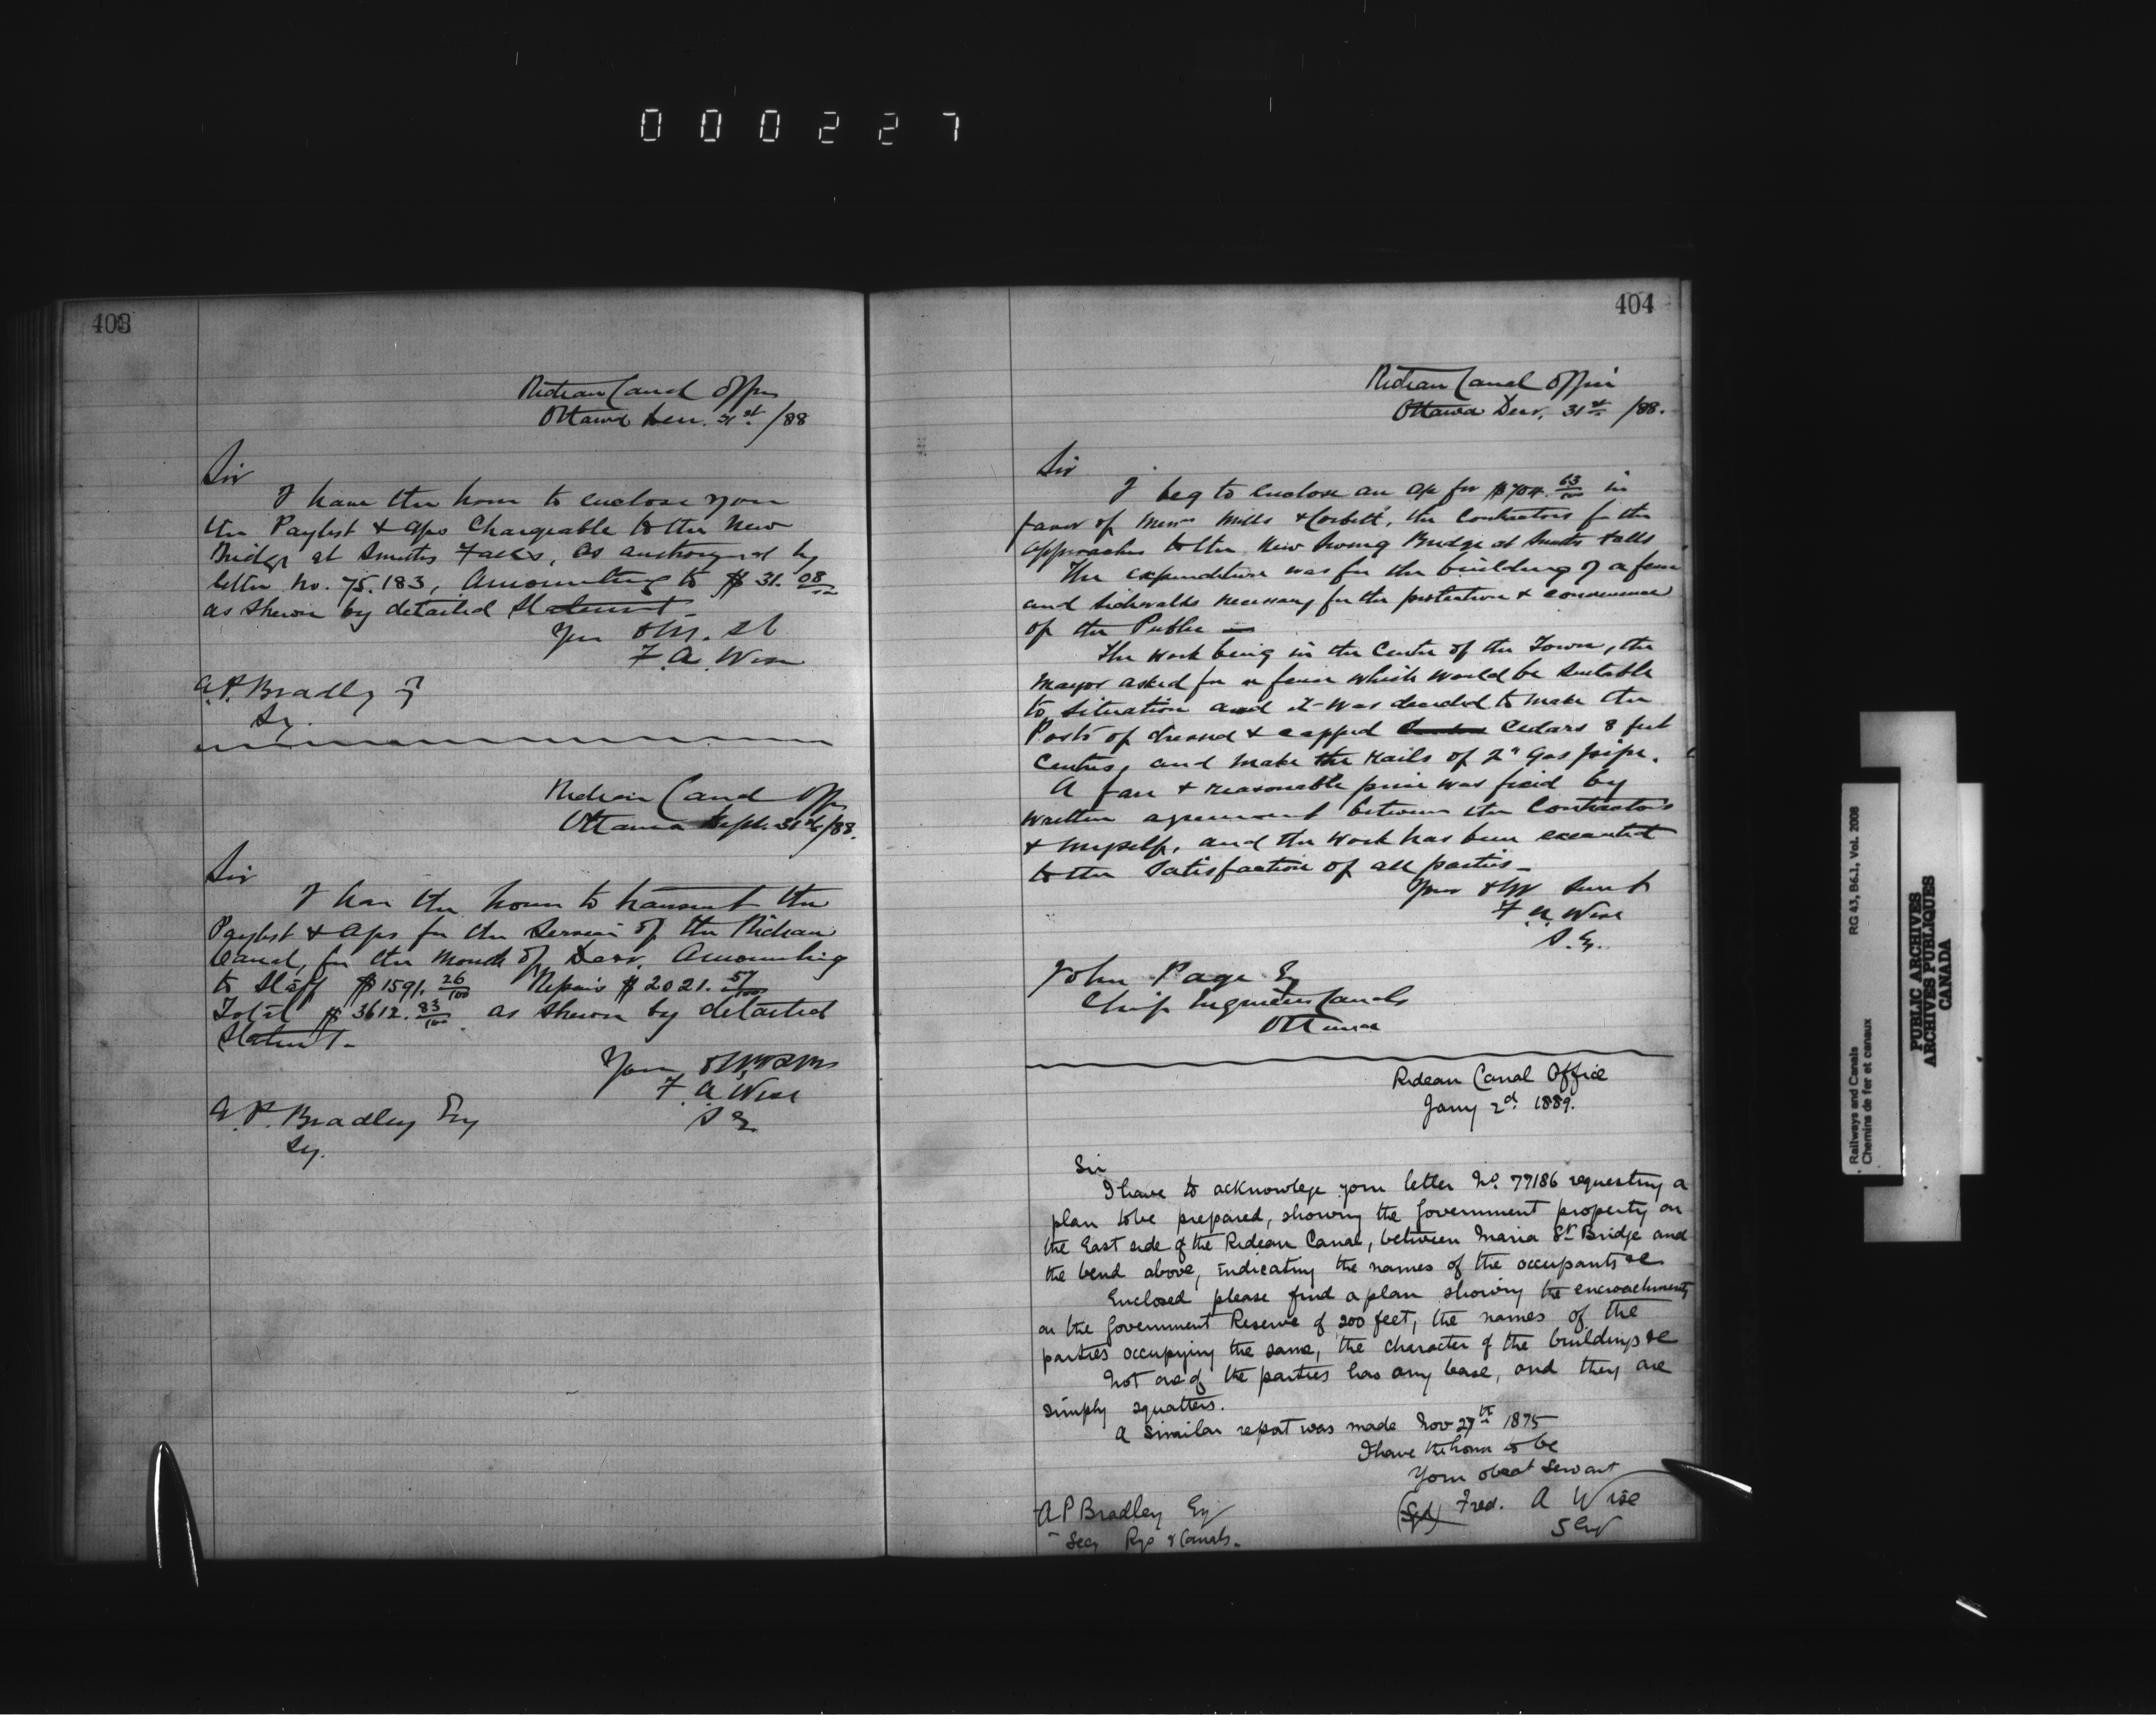 000227
403
Rideau Canal Office
Ottawa Decr. 31st /88
Sir
I have the honor to enclose you
the Paylist & a/cs Chargeable to the New
Bridge at Smiths Falls, as authorized by
letter No. 75.183, Amounting to $31.08
as shewn by detailed Statement-
Your Ob
F. A. Wise
A.P. Bradley
Sy.
Rideau Canal Office
Ottawa 31st/88.
Sir
I have the honor to transmit the
Paylist & a/cs for the Service of the Rideau
Canal, for the month of Decr. Amounting
to Staff $1591. 26/100 Repairs $2021. 57/100
Total $3612. 83/100 as shewn by detailed
Statement-
Your
F. A. Wise
S E
A. P. Bradley Esq
Sy.
404
Rideau Canal Office
Ottawa Decr. 31st /88.
Sir
I beg to enclose an a/c for $704. 63/100 in
favor of Messrs Mills & Corbett, the Contractors for the
approaches to the New Swing Bridge at Smiths Falls
The expenditure was for the building of a fence
and sidewalks necessary for the protection & convenience
of the Public —
The work being in the Centre of the Town, the
Mayor asked for a fence which would be suitable
to situation and it was decided to make the
Posts of dressed & capped Cedars 8 feet
Centres, and make the rails of 2" Gas pipe.
A fair & reasonable price was fixed by
written agreement between the Contractors
& myself, and the work has been executed
to the Satisfaction of all parties-
Your Servt
F. A. Wise
S.E.
John Page Esq
Chief Engineer Canals
Ottawa
Rideau Canal Office
Jany 2d. 1889.
Sir
I have to acknowlege your letter No. 77186 requesting a
plan to be prepared, showing the Government property on
the East side of the Rideau Canal, between Maria St Bridge and
the bend above, indicating the names of the occupants &c
Enclosed please find a plan showing the encroachments
on the Government Reserve of 200 feet, the names of the
parties occupying the same, the character of the buildings &c
Not one of the parties has any lease, and they are
simply squatters.
A similar report was made Nov 27th 1875
I have the honor to be
Your obedt Servant
(Sgd) Fred. A Wise
S Eng
A P Bradley Esq
Secy Rys & Canals.
Railways and Canals
Chemins de fer et canaux
RG 43, B6.1, Vol. 2008
PUBLIC ARCHIVES
ARCHIVES PUBLIQUES
CANADA